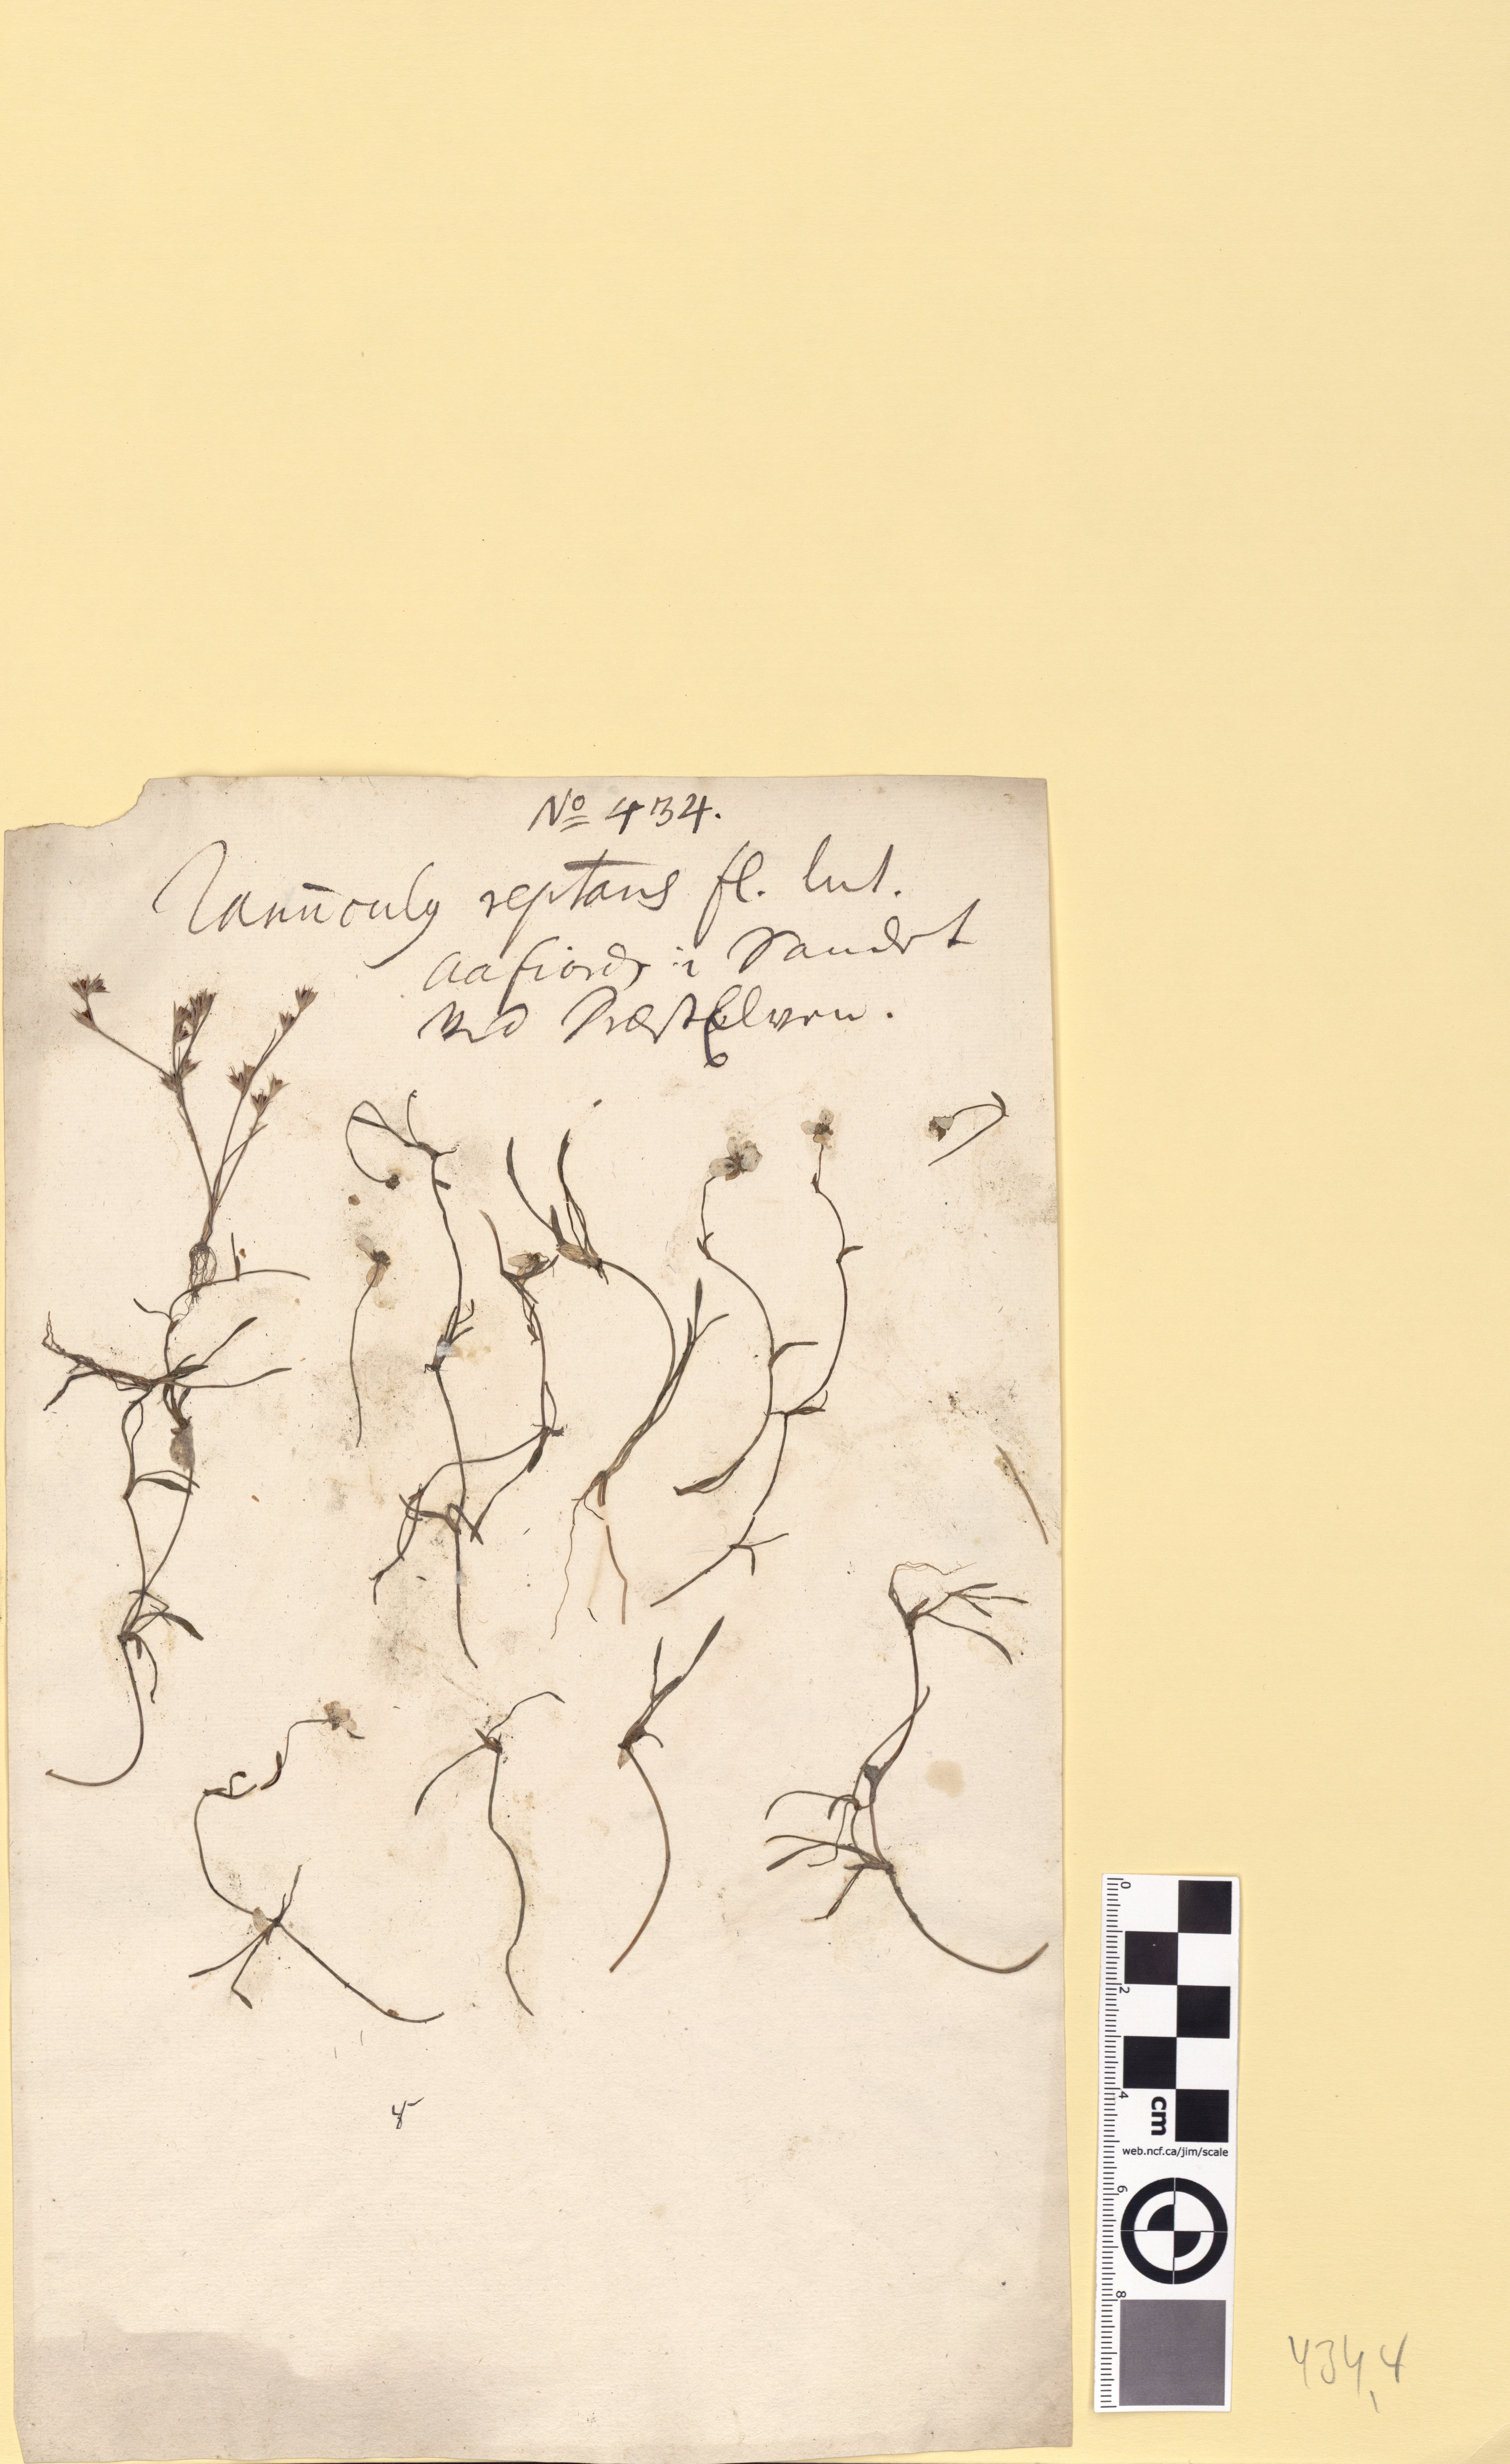 No 434.
Ranunculg reptans fl. lut.
Aafiord, i Vandet
ved Præstelven.
0
2
4
cm
web.ncf.ca/jim/scale
6
8
434,4